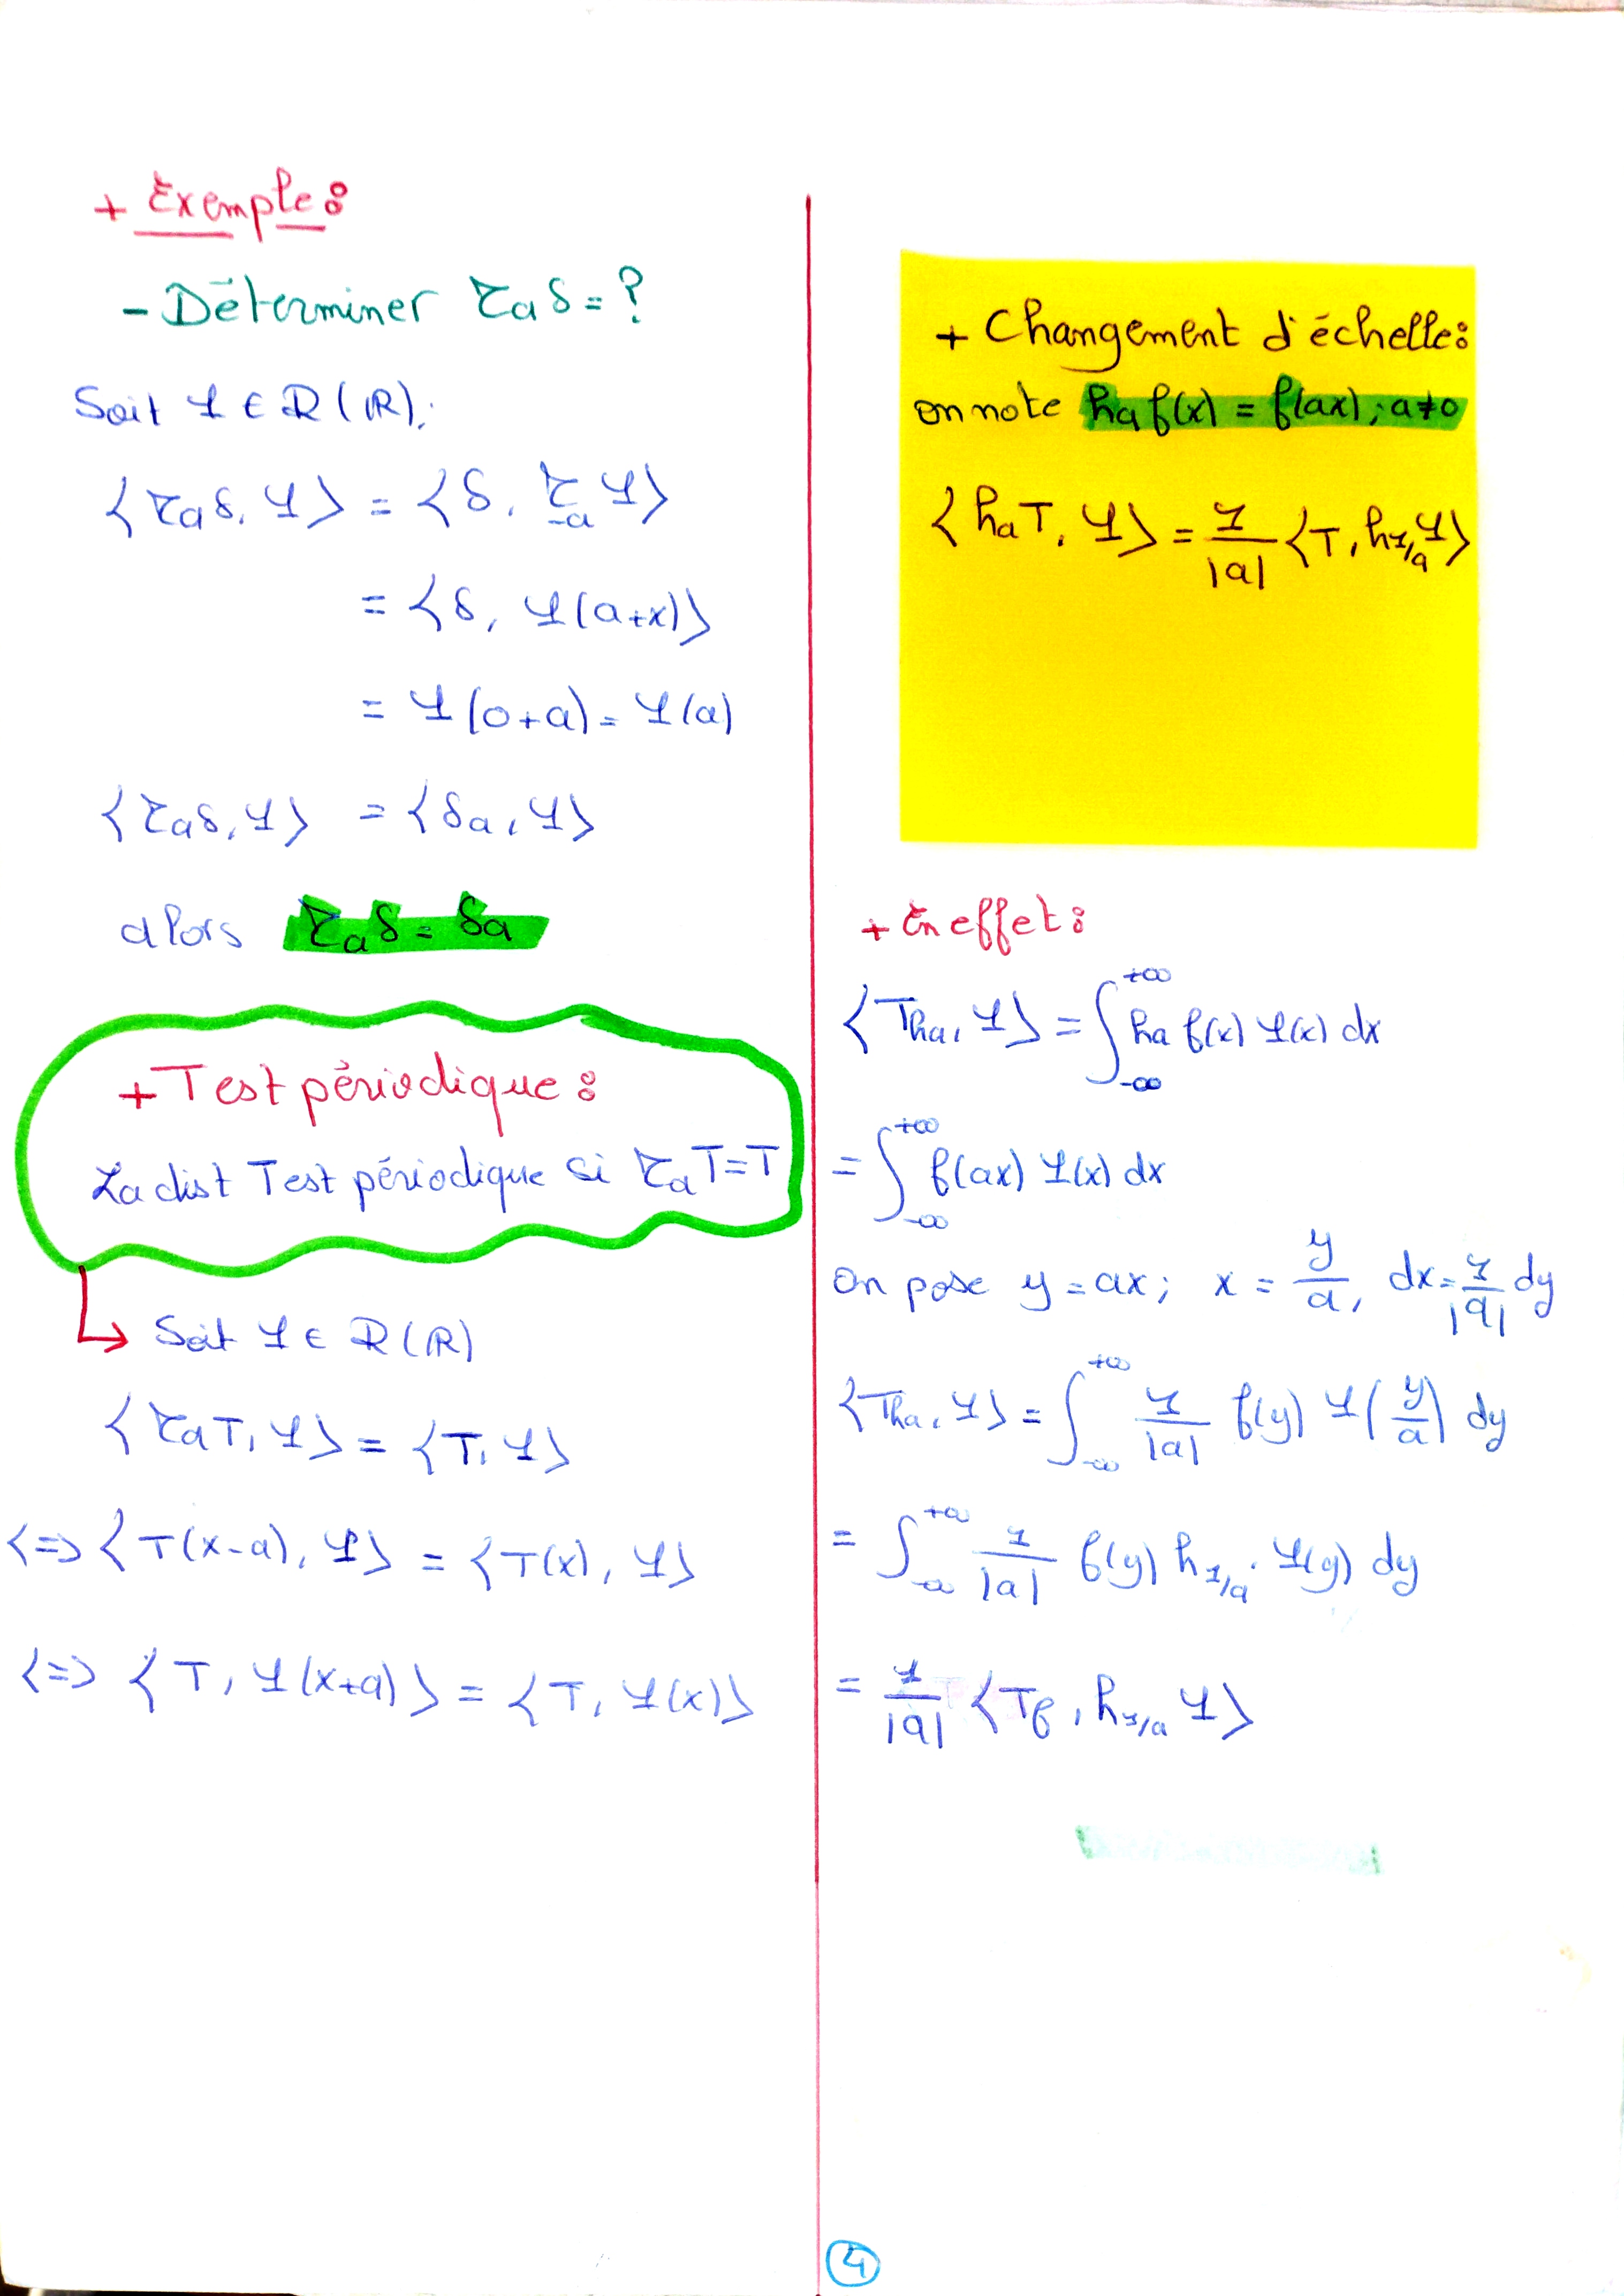 + Exemple :
- Déterminer τaδ = ?
Soit φ ∈ D(R);
⟨τaδ, φ⟩ = ⟨δ, τ-a φ⟩
= ⟨δ, φ(a+x)⟩
= φ(0+a) = φ(a)
⟨τaδ, φ⟩ = ⟨δa, φ⟩
alors τaδ = δa
+ T est périodique :
La dist T est périodique si τaT = T
↳ Soit φ ∈ D(R)
⟨τaT, φ⟩ = ⟨T, φ⟩
<=> ⟨T(x-a), φ⟩ = ⟨T(x), φ⟩
<=> ⟨T, φ(x+a)⟩ = ⟨T, φ(x)⟩
+ Changement d'échelle :
on note ha f(x) = f(ax) ; a≠0
⟨haT, φ⟩ = 1/|a| ⟨T, h1/a φ⟩
+ En effet :
⟨Tha, φ⟩ = ∫-∞+∞ ha f(x) φ(x) dx
= ∫-∞+∞ f(ax) φ(x) dx
on pose y = ax ; x = y/a, dx = 1/|a| dy
⟨Tha, φ⟩ = ∫-∞+∞ 1/|a| f(y) φ(y/a) dy
= ∫-∞+∞ 1/|a| f(y) h1/a . φ(y) dy
= 1/|a| ⟨Tf, h1/a φ⟩
4